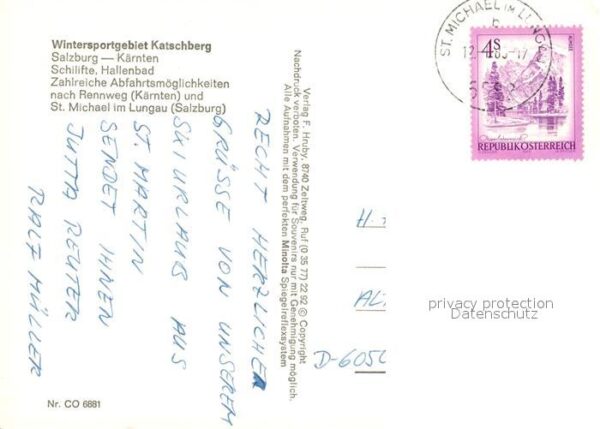 Wintersportgebiet Katschberg
Salzburg — Kärnten
Schilifte, Hallenbad
Zahlreiche Abfahrtsmöglichkeiten
nach Rennweg (Kärnten) und
St. Michael im Lungau (Salzburg)
RECHT HERZLICHE
GRÜSSE VON UNSEREM
SKIURLAUB AUS
ST. MARTIN
SENDET IHNEN
JUTTA REUTER
RALF MÜLLER
Nr. CO 6881
Verlag F. Hruby, 8740 Zeltweg, Ruf (0 35 77) 22 92 © Copyright
Nachdruck verboten. Verwendung für Souvenirs nur mit Genehmigung möglich.
Alle Aufnahmen mit dem perfekten Minolta Spiegelreflexsystem
ST. MICHAEL IM LUNGAU
4S
REPUBLIK ÖSTERREICH
H.
AL
D-605
privacy protection
Datenschutz